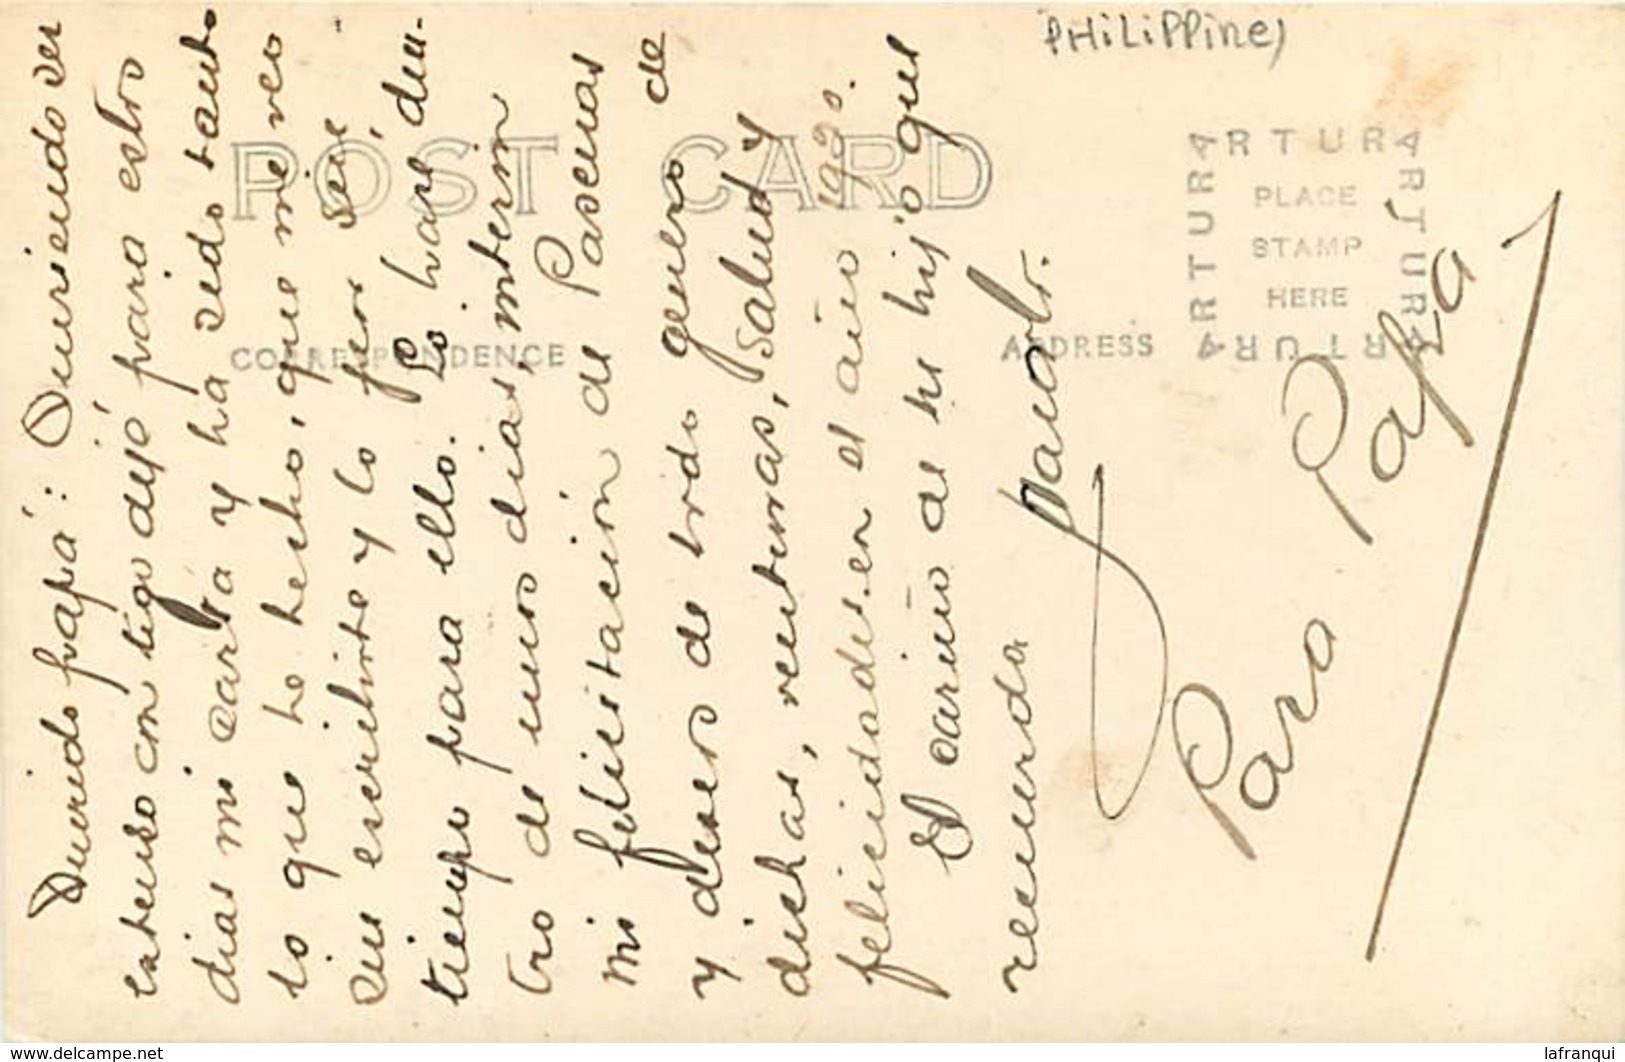 PHILIPPINES
POST CARD
CORRESPONDENCE
ADDRESS
ARTURA
ARTURA
ARTURA
ARTURA
PLACE
STAMP
HERE
Querido papá: Queriendo ser
extenso contigo dejé para estos
dias mi carta y ha sido tanto
lo que he hecho, que me veo
sin escribirte y lo peor sin
tiempo para ello. Lo haré, den-
tro de unos dias, interin
mi felicitación de Pascuas
y deseos de todo genero de
dichas, venturas, salud y
felicidades en el año 1930.
El cariño de su hijo que
recuerda
Para Papa
www.delcampe.net
lafranqui